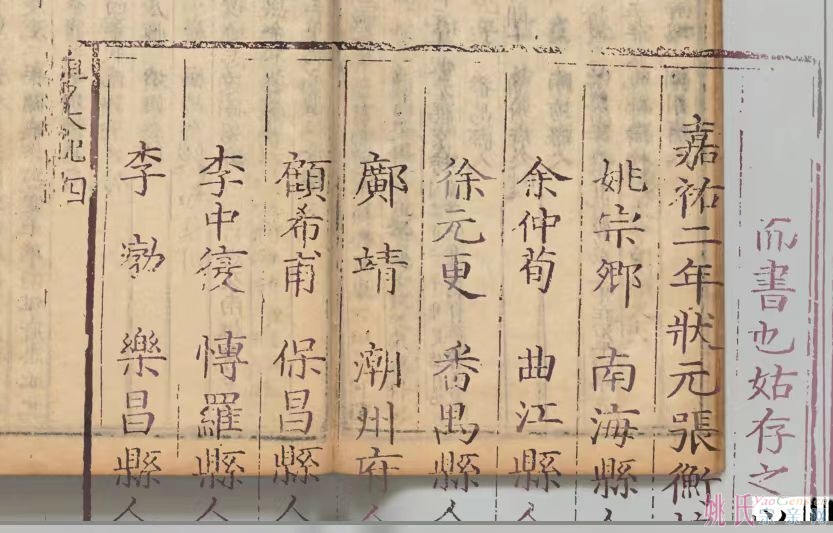 而書也姑存之
嘉祐二年狀元張衡
姚宗卿 南海縣人
余仲荀 曲江縣人
徐元更 番禺縣人
鄺靖 潮州府人
顧希甫 保昌縣人
李中復 博羅縣人
李渤 樂昌縣人
粵大記四
姚氏宗亲网